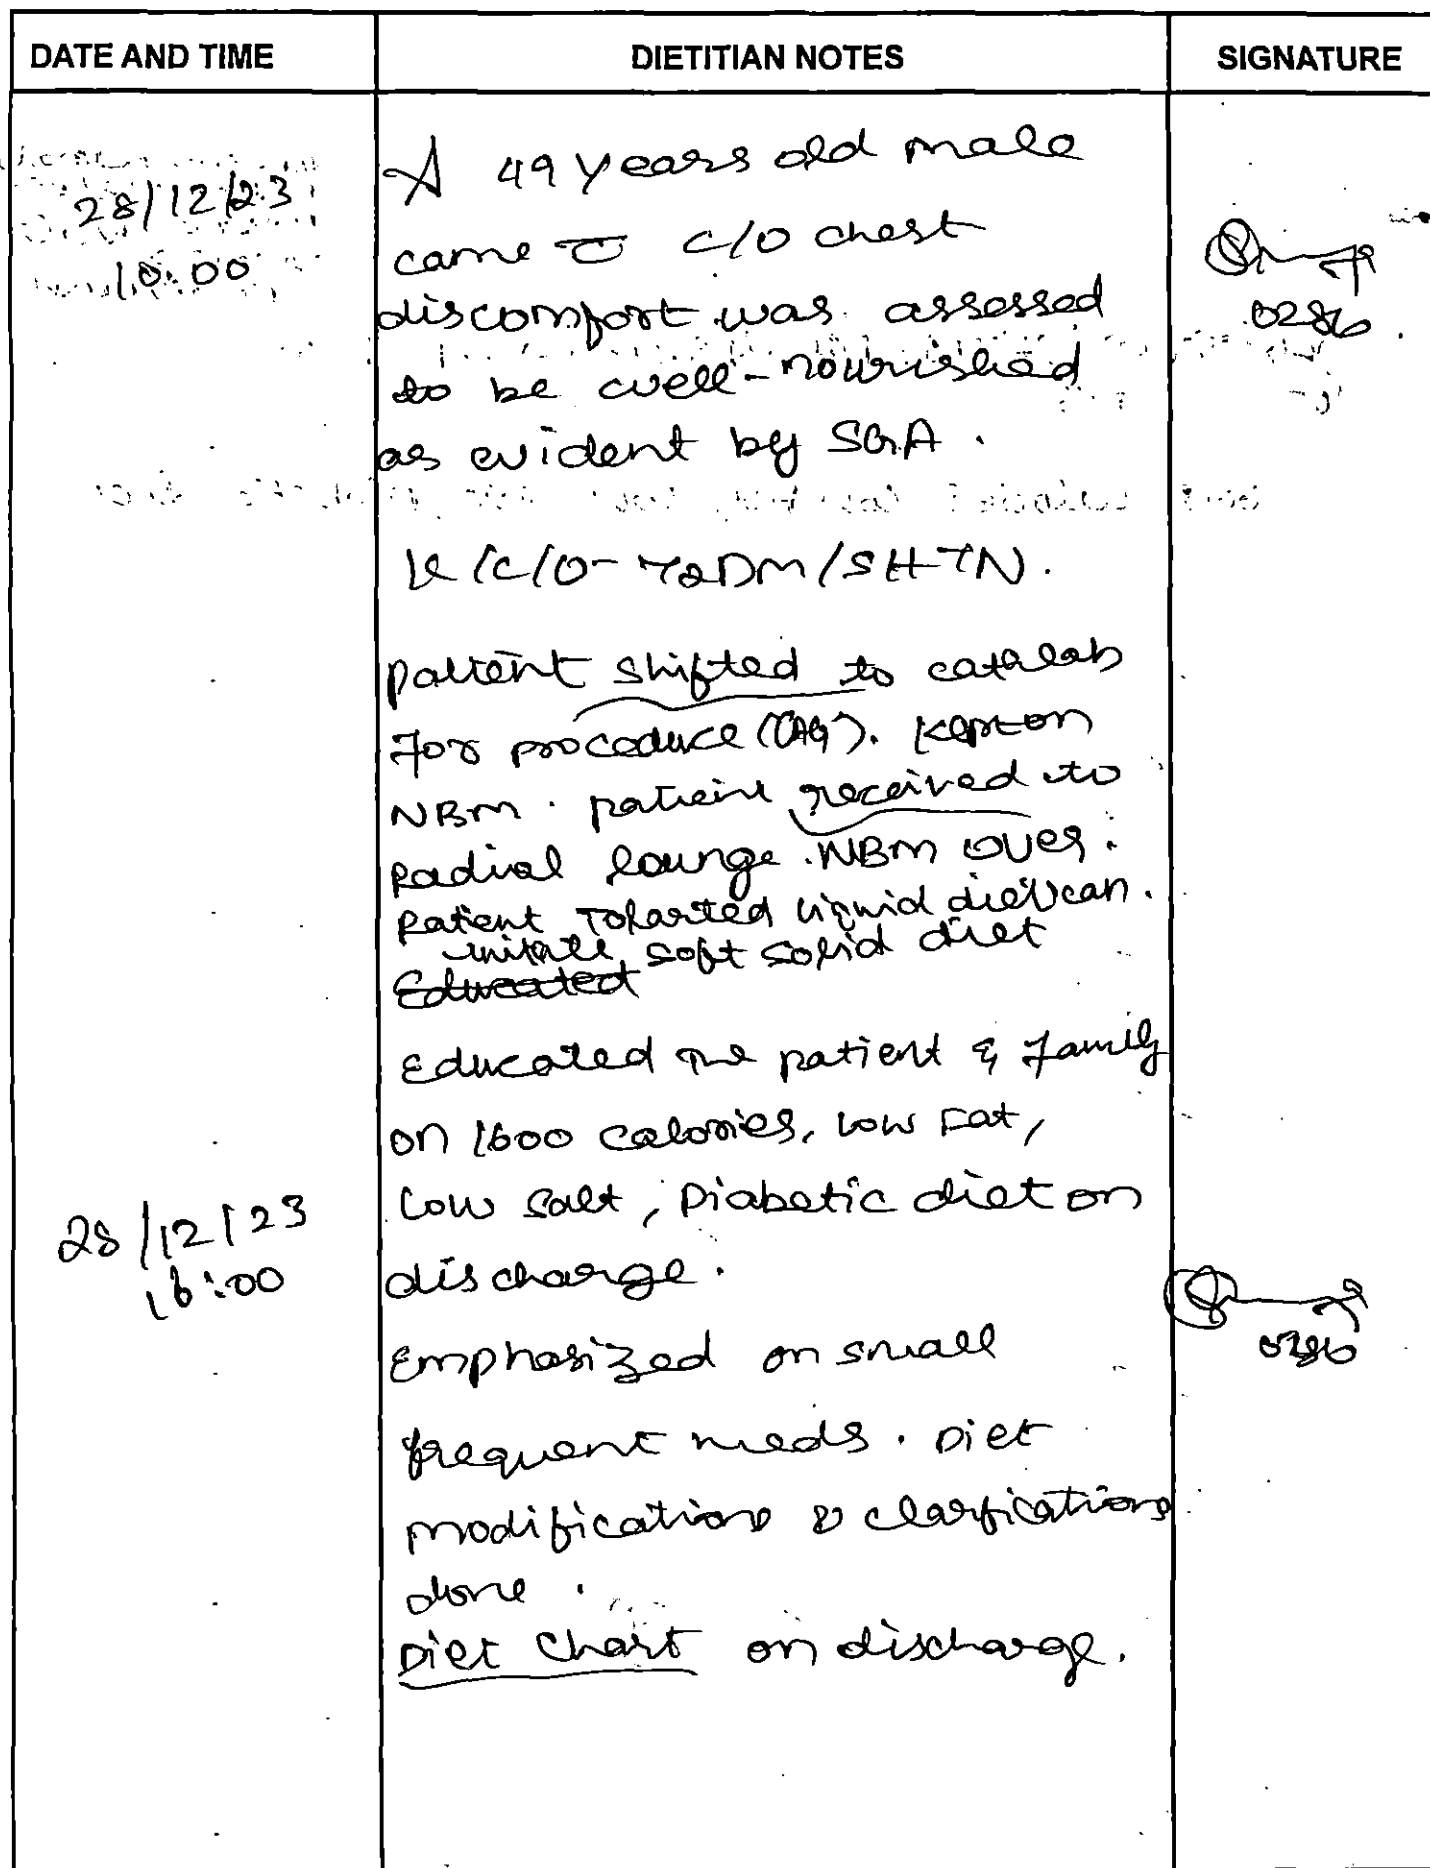 DATE AND TIME DIETITIAN NOTES SIGNATURE
28/12/23
10:00
A 49 years old male
came c̄ c/o chest
discomfort was assessed
to be well-nourished
as evident by SGA.
0286
K/C/O- T2DM/SHTN.
patient shifted to cathlab
For procedure (CAG). Kept on
NBM. patient received to
Radial lounge. NBM over.
Patient Tolarted liquid diet can.
initate soft solid diet
Educated
Educated the patient & family
on 1600 calories, low Fat,
low salt, Diabetic diet on
28/12/23
16:00
discharge.
0286
Emphasized on small
frequent meals. Diet
modifications & clarfications
done.
Diet Chart on discharge.